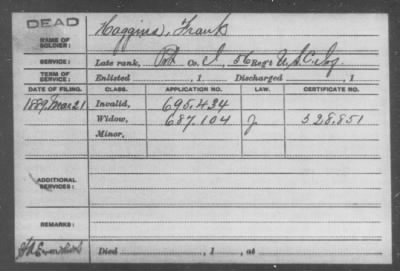 DEAD
NAME OF SOLDIER: Haggins, Frank
SERVICE: Late rank, Pvt Co. I, 56 Reg't U.S.C. Inf.
TERM OF SERVICE: Enlisted , 1 Discharged , 1
DATE OF FILING. CLASS. APPLICATION NO. LAW. CERTIFICATE NO.
1889, Mar 21 Invalid, 695.434
Widow, 687.104 J 328.851
Minor,
ADDITIONAL SERVICES:
REMARKS:
Died , 1 , at